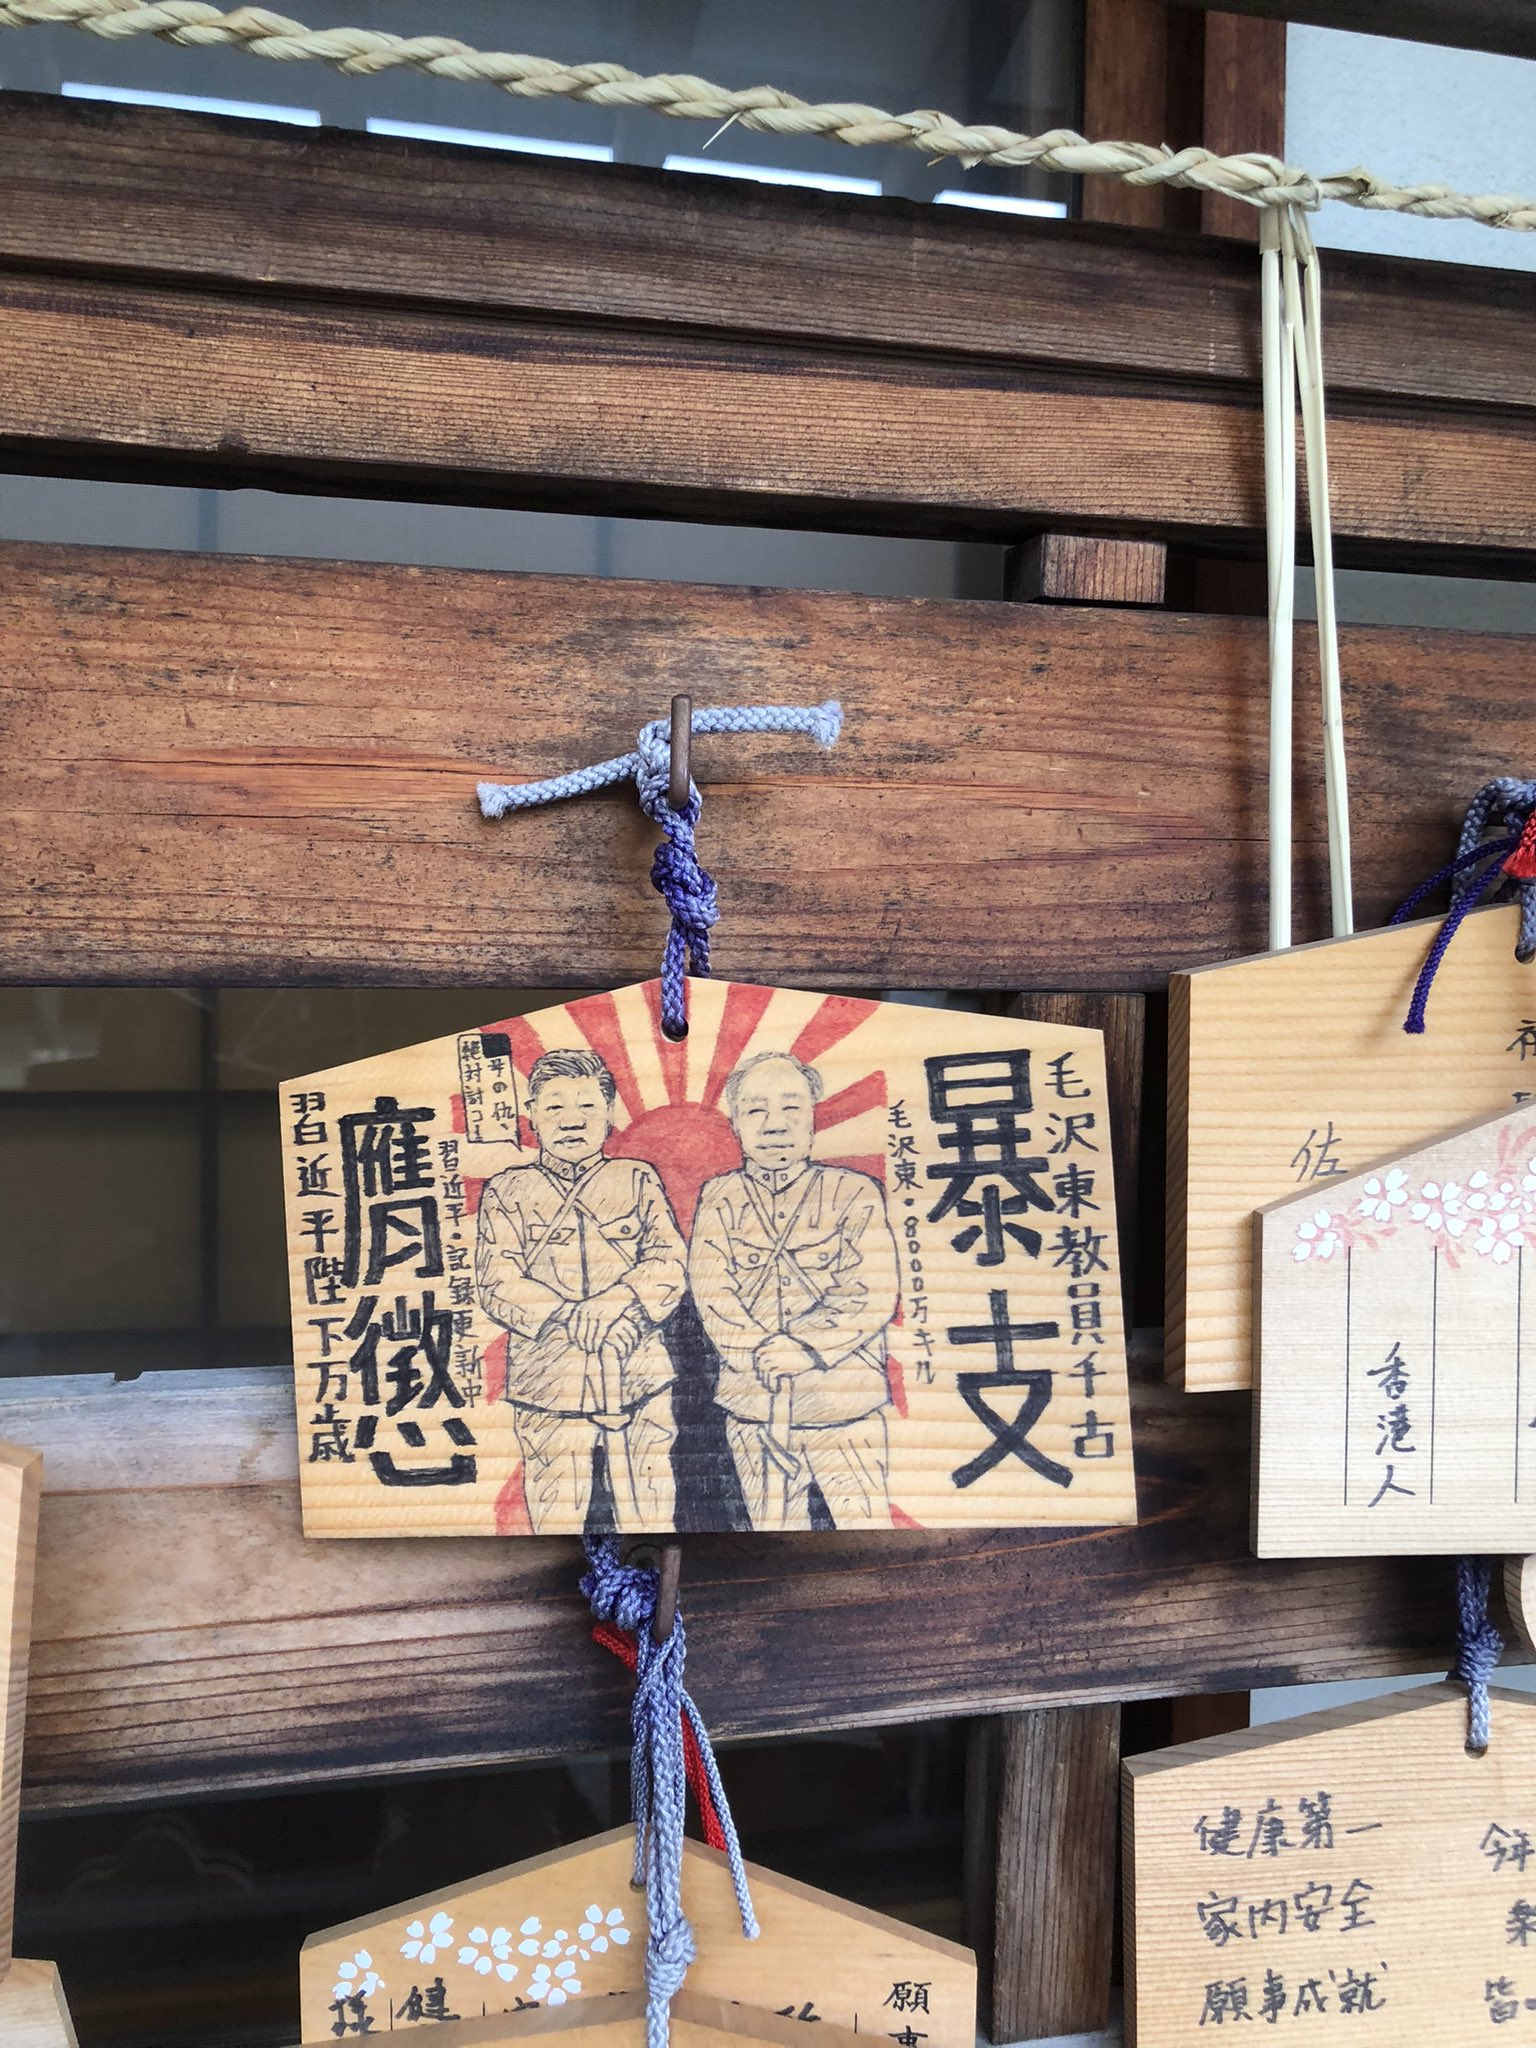 毛沢東教員千古
暴支
毛沢東・8000万キル
母の仇、
絶対討つ!
習近平・記録更新中
膺懲
習近平陛下万歳
佐
香港人
健康第一
家内安全
願事成就
今年
楽
皆
願事
健
様